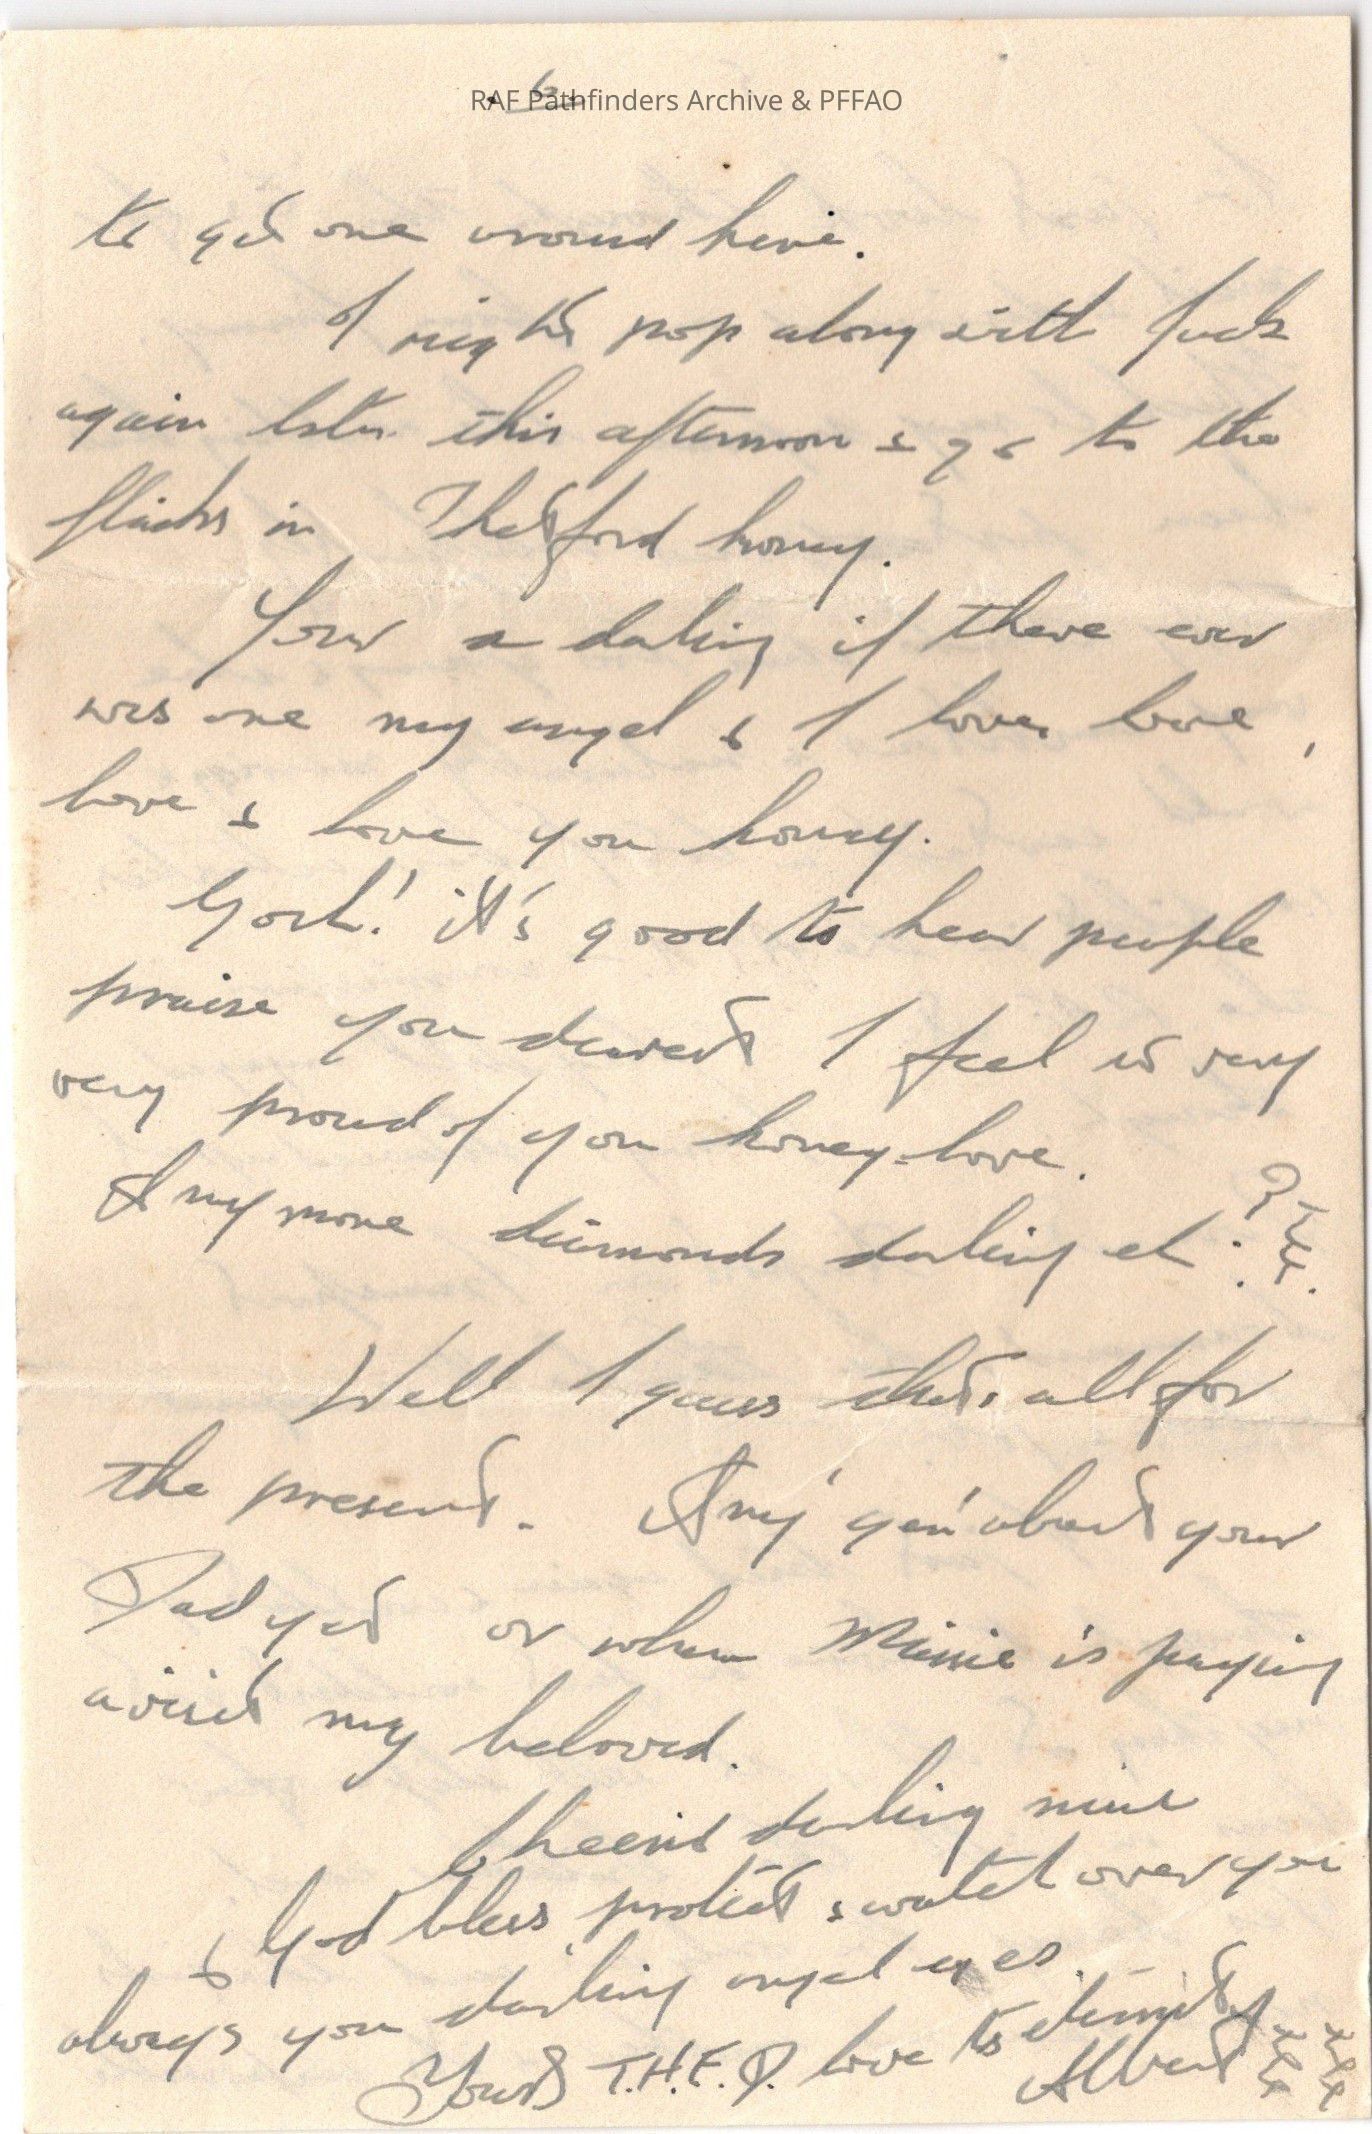 6.
RAF Pathfinders Archive & PFFAO
to get one around here.
I might pop along with Jack
again later this afternoon & go to the
flicks in Thetford honey.
Your a darling if there ever
was one my angel & I love, love,
love & love you honey.
Gosh! it's good to hear people
praise you dearest I feel so very
very proud of you honey-love.
Anymore diamonds darling eh?
Well I guess that's all for
the present. Any 'gen' about your
Dad yet or when Minnie is paying
a visit my beloved.
Cheerio darling mine
& God bless protect & watch over you
always you darling angel eyes.
Yours T.H.E.D. love to eternity
Albert